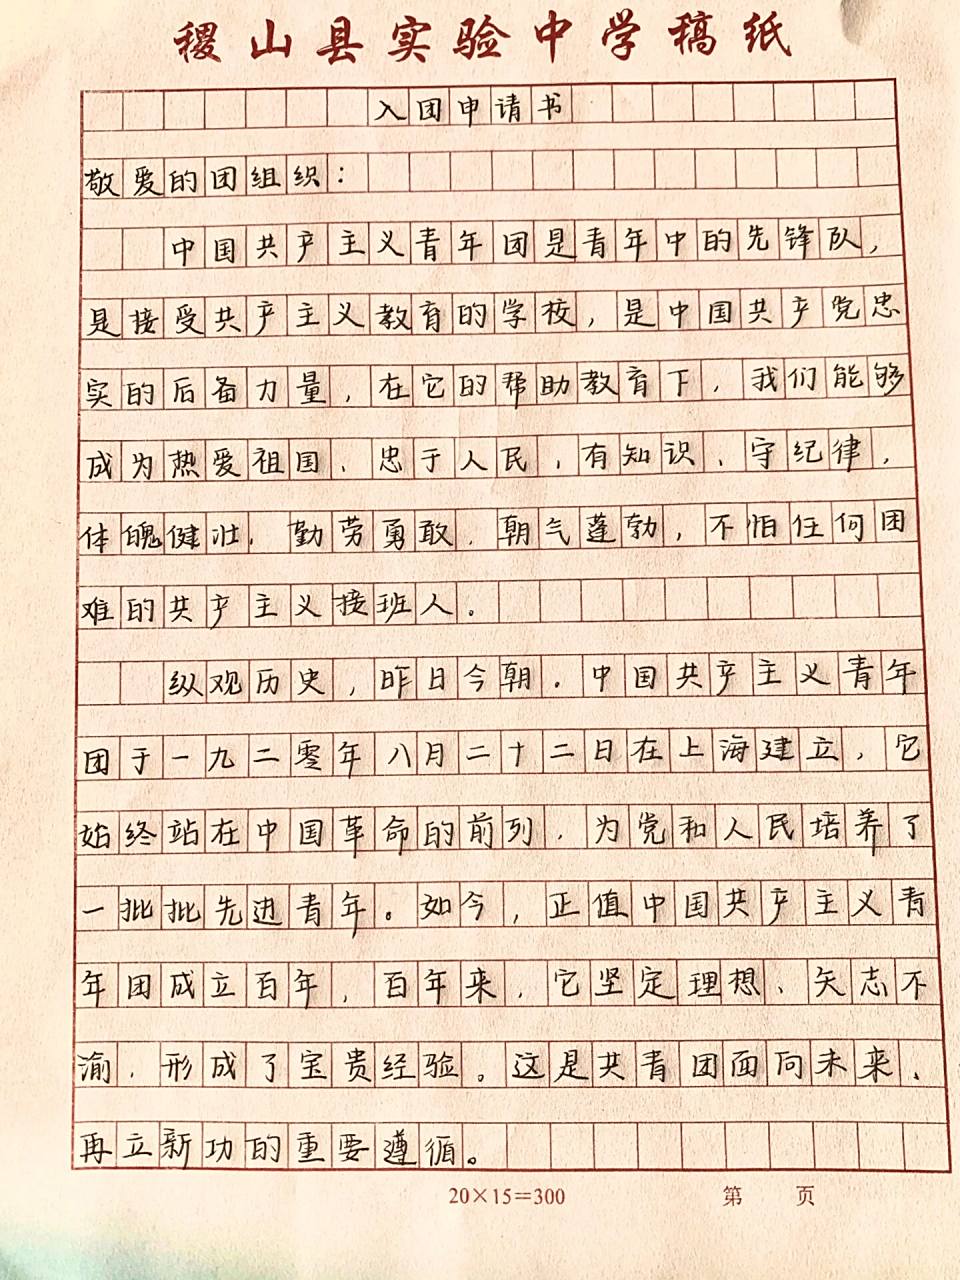 稷山县实验中学稿纸
入团申请书
敬爱的团组织：
中国共产主义青年团是青年中的先锋队，
是接受共产主义教育的学校，是中国共产党忠
实的后备力量，在它的帮助教育下，我们能够
成为热爱祖国、忠于人民，有知识、守纪律，
体魄健壮，勤劳勇敢，朝气蓬勃，不怕任何团
难的共产主义接班人。
纵观历史，昨日今朝，中国共产主义青年
团于一九二零年八月二十二日在上海建立，它
始终站在中国革命的前列，为党和人民培养了
一批批先进青年。如今，正值中国共产主义青
年团成立百年，百年来，它坚定理想、矢志不
渝，形成了宝贵经验。这是共青团面向未来、
再立新功的重要遵循。
20×15=300 第 页